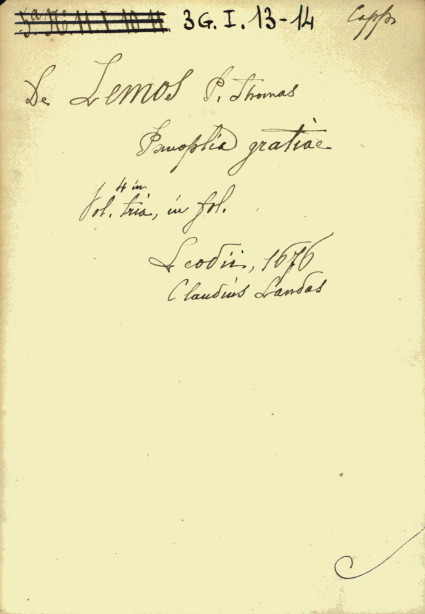 3 G. I. 13-14
De Lemos P. Thomas
Panoplia gratiae
4 in
Vol. tria, in fol.
Leodii, 1676
Claudius Landas